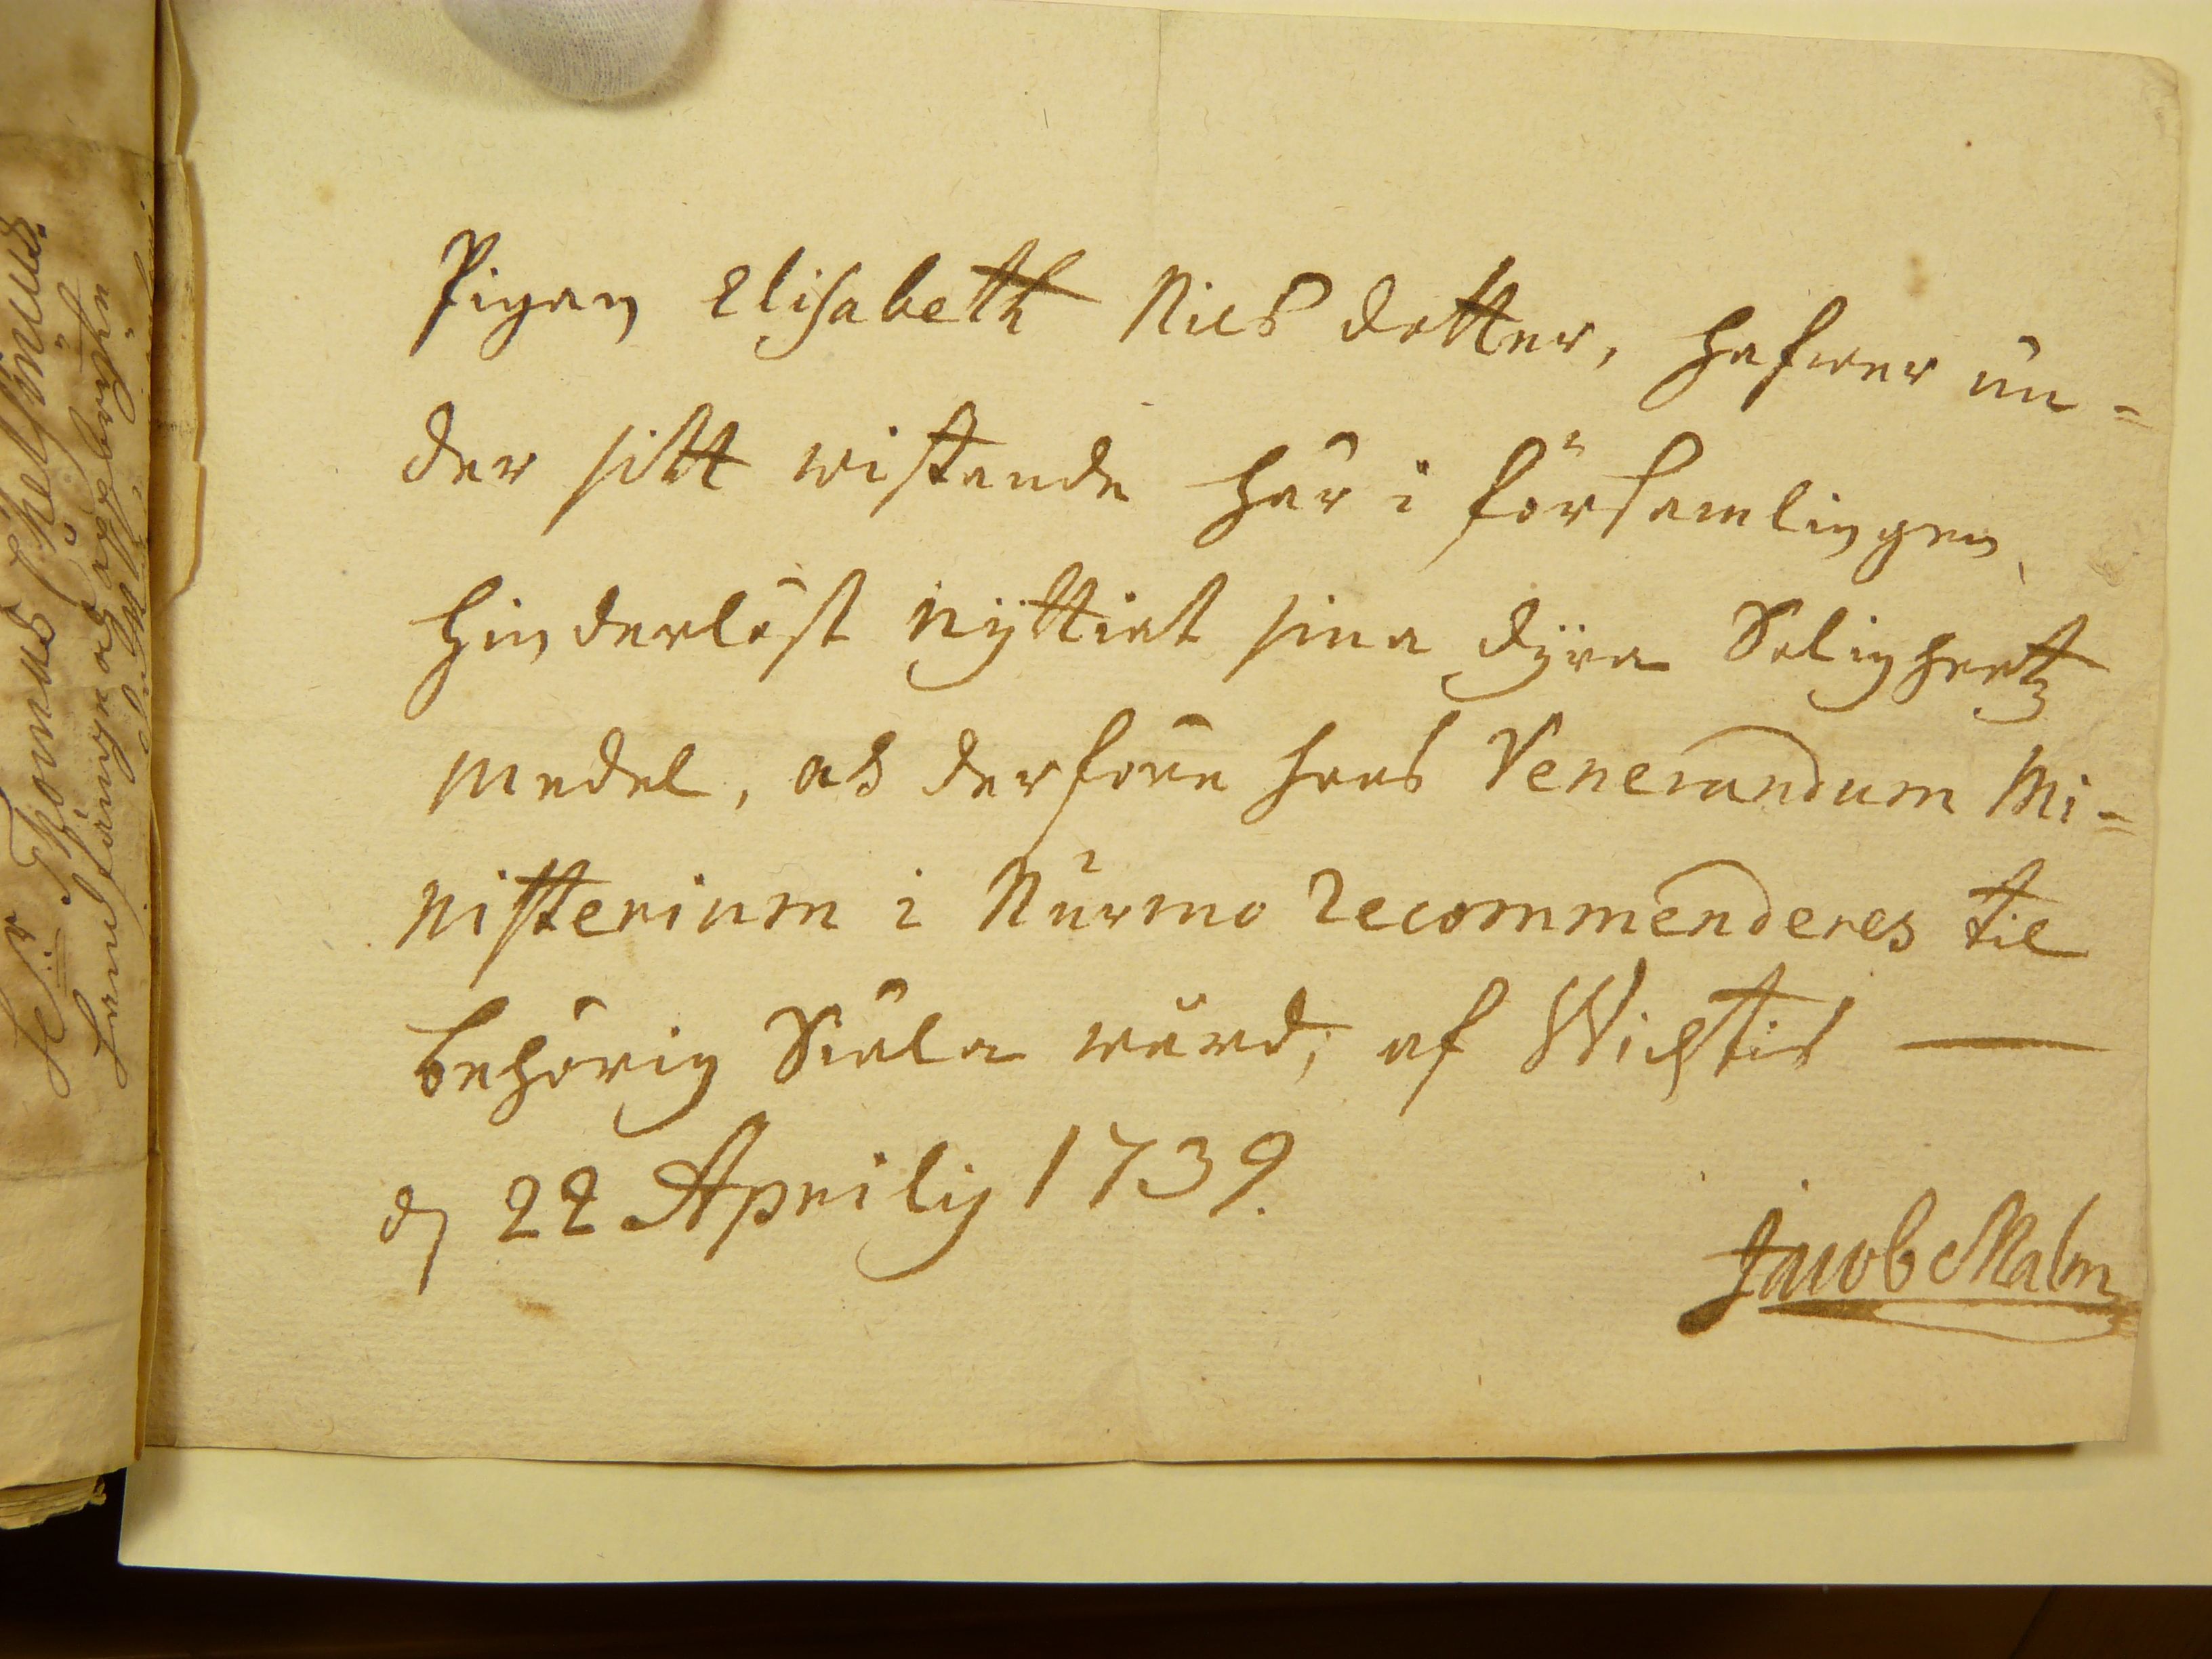 Pigan Elisabeth Nils dotter, hafwer un=
der sitt wistande här i församlingen
hinderlöst nyttiat sina dyra Salighetz
medel, ok derföre hoos Venerandum Mi=
nisterium i Nurmo recommenderes til
behörig Siäla wård, af Wichtis
d 22 Aprilis 1739.
Jacob Malm
Thomas